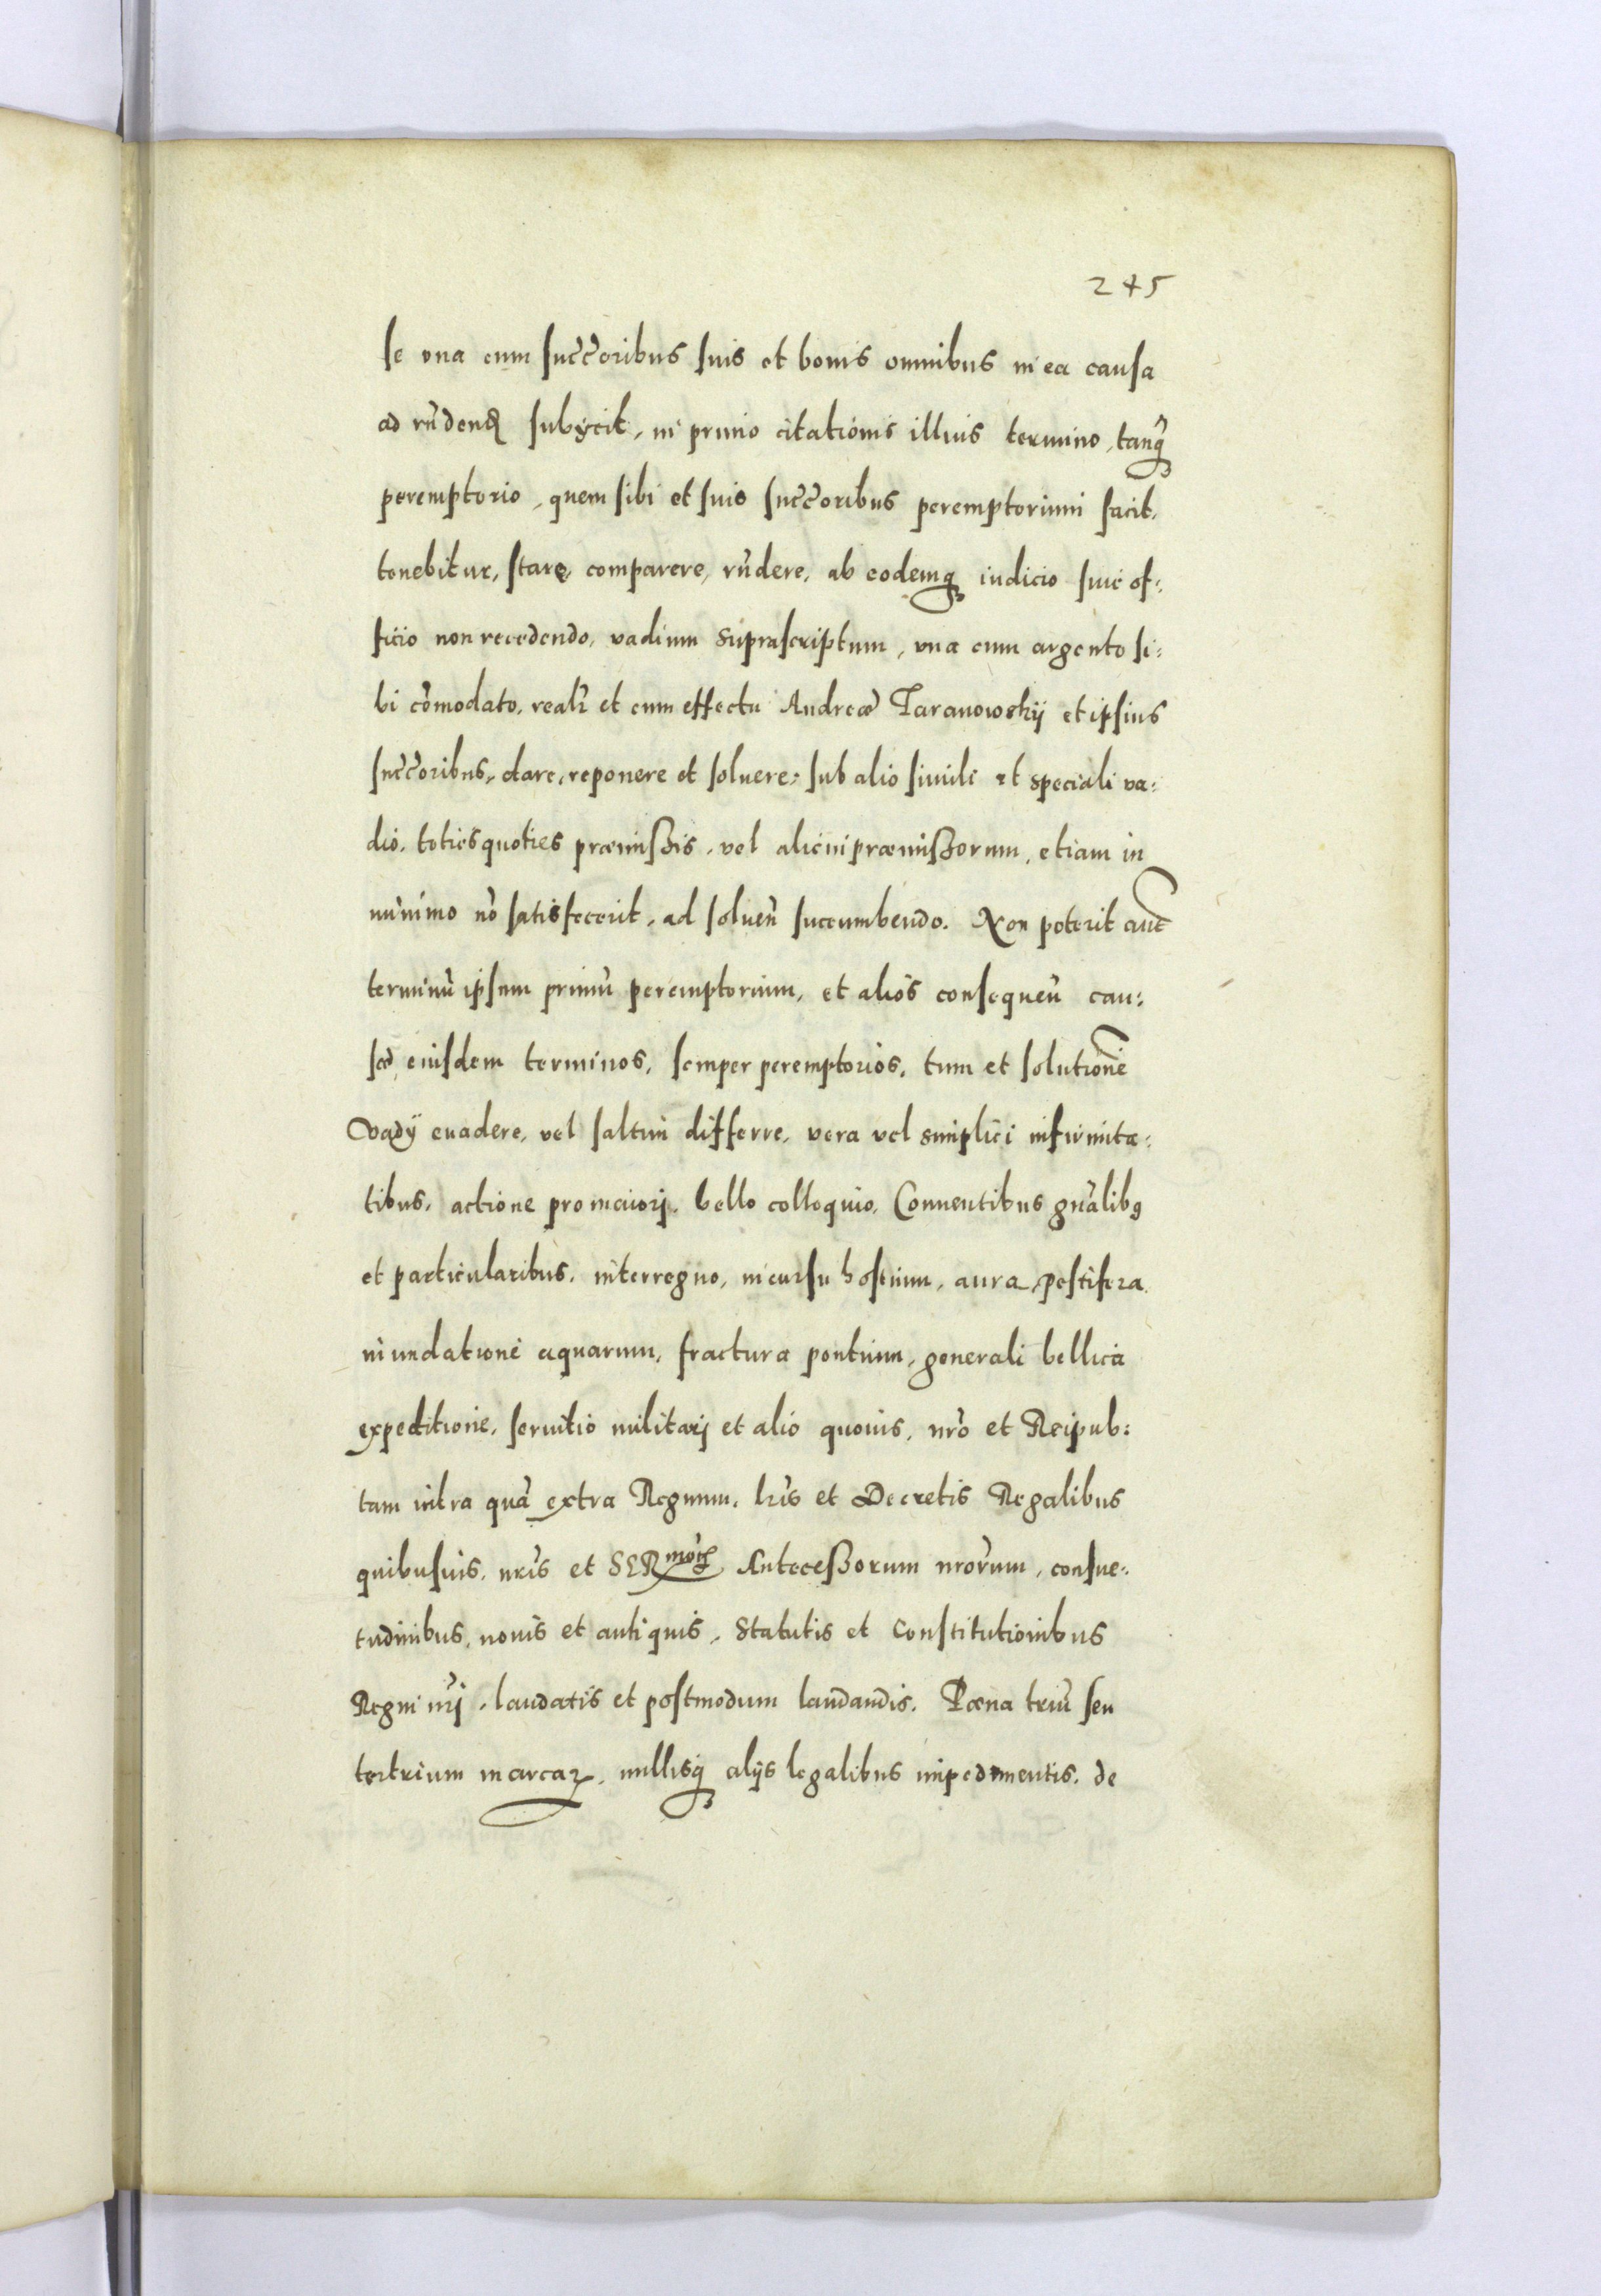 245
se vna cum succoribus suis et bonis omnibus in ea causa
ad rndend subijcit, in primo citationis illius termino, tanq
peremptorio, quem sibi et suis succoribus peremptorium facit,
tenebitur, stare, comparere, rndere, ab eodemq iudicio siue of:
ficio non recedendo, vadium suprascriptum, vna cum argento si:
bi comodato, realr et cum effectu Andreæ Taranowskij et ipsius
succoribus, dare, reponere et soluere, sub alio simili et speciali va:
dio, toties quoties præmissis, vel alicui præmissorum, etiam in
minimo no satisfecerit, ad soluen succumbendo. Non poterit aut
terminu ipsum primu peremptorium, et alios consequen cau:
sæ eiusdem terminos, semper peremptorios, tum et solutione
Vadij euadere, vel saltim differre, vera vel simplici infirmita:
tibus, actione pro maiori, bello colloquio, Conuentibus gnalibq
et particularibus, interregno, incursu hostium, aura pestifera
inundatione aquarum, fractura pontium, generali bellica
expeditione, seruitio militari et alio quouis, nro et Reipub:
tam intra qua extra Regnum, lris et Decretis Regalibus
quibusuis, nris et SERmor Antecessorum nrorum, consue:
tudinibus, nouis et antiquis, Statutis et Constitutionibus
Regni nri, laudatis et postmodum laudandis. Pœna triu seu
tertrium marcar, nullisq alijs legalibus impedimentis, de